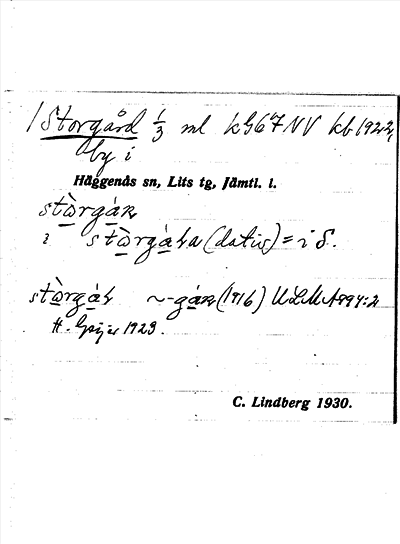 / Storgård 1/3 ml kG67NV kb1922,
by i
Häggenås sn, Lits tg, Jämtl. l.
stòrgáṛ
i stòrgáṛa (dativ) = i S.
stòrgáṛ ~-gáṛṇ (1916) ULMA 894:2
H. Geijer 1923.
C. Lindberg 1930.